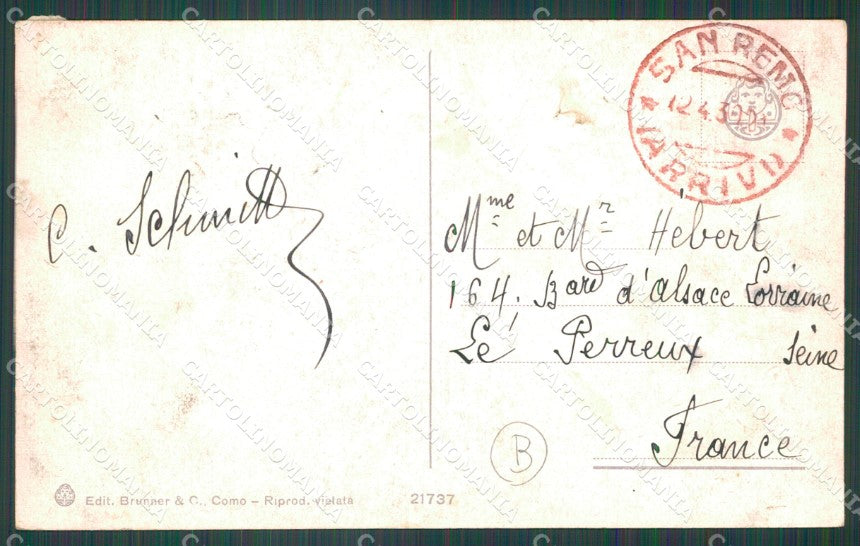 SAN REMO
12.4.3
(ARRIVI)
C. Schmitt
Mme et Mr Hébert
164, Bard d'Alsace Lorraine
Lé Perreux Seine
France
B
Edit. Brunner & C., Como – Riprod. vietata
21737
CARTOLINOMANIA